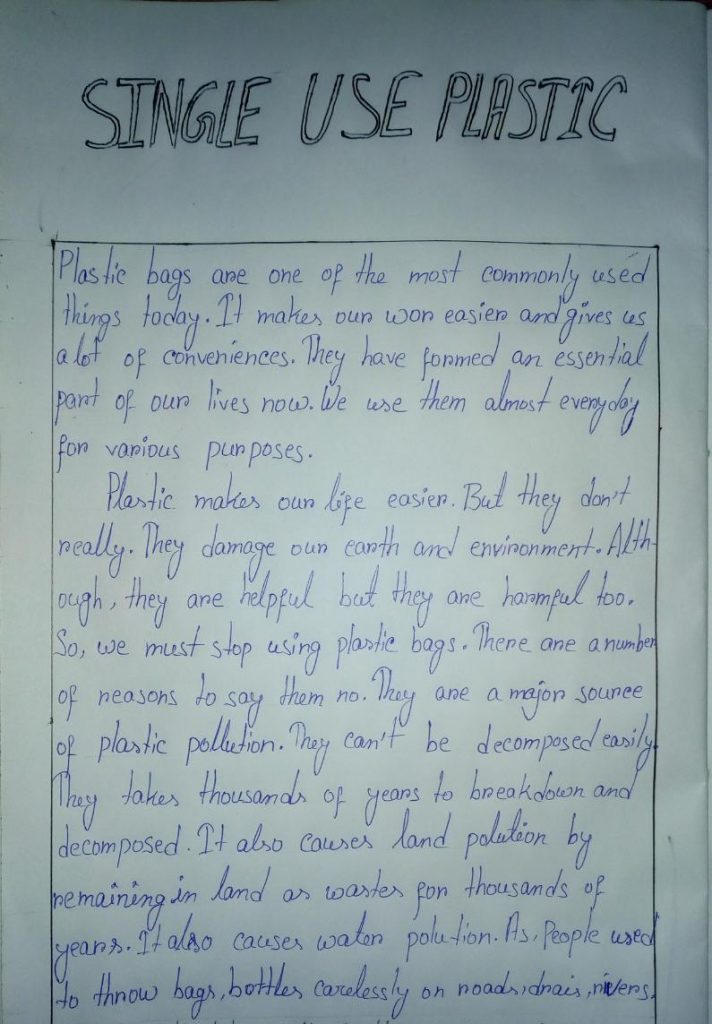 SINGLE USE PLASTIC
Plastic bags are one of the most commonly used
things today. It makes our wor easier and gives us
a lot of conveniences. They have formed an essential
part of our lives now. We use them almost everyday
for various purposes.
Plastic makes our life easier. But they don't
really. They damage our earth and environment. Alth-
ough, they are helpful but they are harmful too.
So, we must stop using plastic bags. There are a number
of reasons to say them no. They are a major source
of plastic pollution. They can't be decomposed easily.
They takes thousands of years to breakdown and
decomposed. It also causes land polution by
remaining in land as wastes for thousands of
years. It also causes water polution. As, People used
to throw bags, bottles carelessly on roads, drais, rivers.